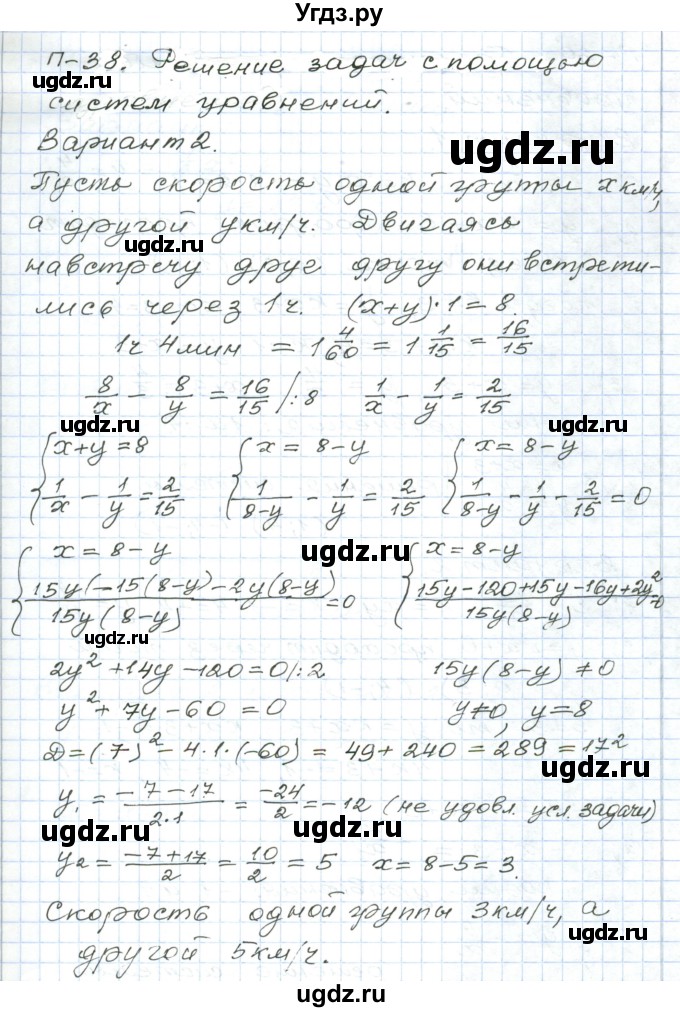 Угдз.ру
П-38. Решение задач с помощью
систем уравнений.
Вариант 2.
ugdz.ru
Пусть скорость одной группы x км/ч,
а другой y км/ч. Двигаясь
ugdz.ru
навстречу друг другу они встрети-
лись через 1 ч. (x+y)·1 = 8.
1ч 4мин = 1 4/60 = 1 1/15 = 16/15
ugdz.ru
8/x - 8/y = 16/15 /:8 1/x - 1/y = 2/15
ugdz.ru ugdz.ru
{x+y=8 {x = 8-y {x = 8-y
1/x - 1/y = 2/15 1/(8-y) - 1/y = 2/15 1/(8-y) - 1/y - 2/15 = 0
ugdz.ru
{x = 8-y {x = 8-y
(15y(-15(8-y)-2y(8-y))/(15y(8-y)) = 0 (15y-120+15y-16y+2y²)/(15y(8-y)) = 0
ugdz.ru
2y² + 14y - 120 = 0 /:2 15y(8-y) ≠ 0
ugdz.ru
y² + 7y - 60 = 0 y≠0, y=8
D = (7)² - 4·1·(-60) = 49 + 240 = 289 = 17²
ugdz.ru
y₁ = (-7-17)/(2·1) = -24/2 = -12 (не удовл. усл. задачи)
ugdz.ru ugdz.ru
y₂ = (-7+17)/2 = 10/2 = 5 x = 8-5 = 3.
Скорость одной группы 3км/ч, а
ugdz.ru
другой 5км/ч.
ugdz.ru
ugdz.ru